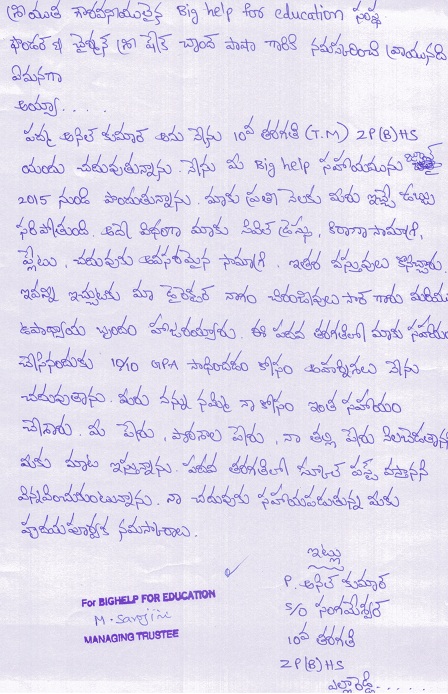 శ్రీయుత గౌరవనీయులైన Big help for education సంస్థ
ఫౌండర్ & ఛైర్మన్ శ్రీ షేక్ చాంద్ పాషా గారికి నమస్కరించి వ్రాయునది
ఏమనగా
అయ్యా.....
పద్మ అనిల్ కుమార్ అను నేను 10వ తరగతి (T.M) ZP(B)HS
యందు చదువుతున్నాను. నేను మీ Big help సహాయమును
2015 నుండి పొందుతున్నాను. మాకు ప్రతి నెలకు మీరు ఇచ్చే డబ్బు
సరిపోతుంది. అదే విధంగా మాకు సివిల్ డ్రెస్సు, కిరాణాసామాగ్రి,
ప్లేటు, చదువుకు అవసరమైన సామాగ్రి, ఇతర వస్తువులు కొనిచ్చారు.
ఇవన్నీ ఇచ్చుటకు మా డైరెక్టర్ నాగం చిరంజీవులు సార్ గారు మరియు
ఉపాధ్యాయ బృందం హాజరయ్యారు. ఈ పదవ తరగతిలో మాకు సహాయం
చేసినందుకు 10/10 GPA సాధించడం కోసం అహర్నిశలు నేను
చదువుతాను. మీరు నన్ను నమ్మి నా కోసం ఇంత సహాయం
చేసారు. మీ పేరు, పాఠశాల పేరు, నా తల్లి పేరు నిలబెడతాను
మీకు మాట ఇస్తున్నాను. పదవ తరగతిలో స్కూల్ ఫస్ట్ వస్తానని
విన్నవించుకుంటున్నాను. నా చదువుకు సహాయపడుతున్న మీకు
హృదయపూర్వక నమస్కారాలు.
ఇట్లు
P. అనిల్ కుమార్
S/O సంగమేశ్వర్
10వ తరగతి
ZP(B)HS
ఎల్లారెడ్డి......
For BIGHELP FOR EDUCATION
M. Sarojini
MANAGING TRUSTEE